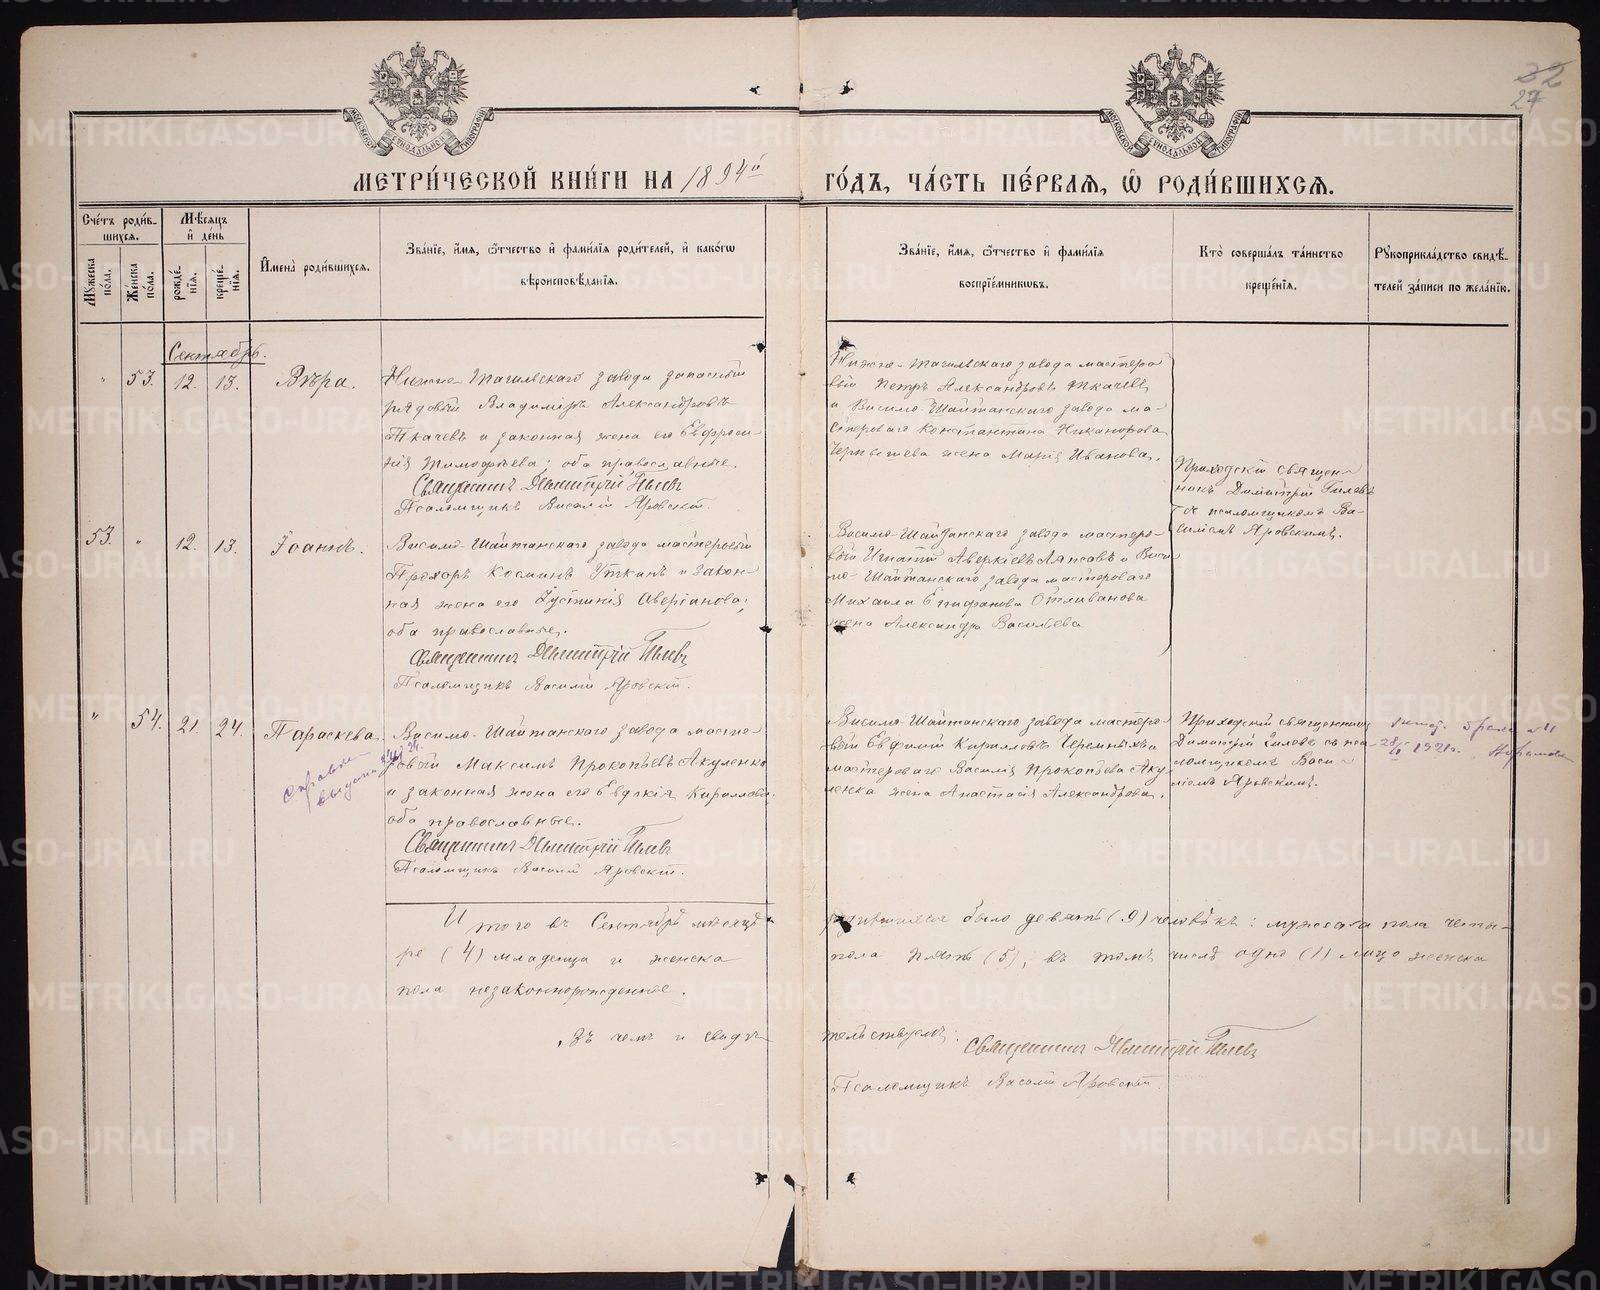 32
27
МОСКОВСКОЙ СѴНОДАЛЬНОЙ ТИПОГРАФІИ
МОСКОВСКОЙ СѴНОДАЛЬНОЙ ТИПОГРАФІИ
МЕТРИ́ЧЕСКОЙ КНИ́ГИ НА 1894й ГО́ДЪ, ЧА́СТЬ ПЕ́РВАѦ, Ѡ РОДИ́ВШИХСѦ.
Сче́тъ роди́в-
шихсѧ.
Мѣ́сѧцъ
и҆ де́нь
Мꙋ́жеска по́ла.
Же́нска по́ла.
рожде́нїѧ.
креще́нїѧ.
И҆мена̀ роди́вшихсѧ.
Зва́нїе, и҆́мѧ, ѻ҆́тчество и҆ фами́лїѧ роди́телей, и҆ како́гѡ
вѣроисповѣ́данїѧ.
Зва́нїе, и҆́мѧ, ѻ҆́тчество и҆ фами́лїѧ
воспрїе́мникѡвъ.
Кто̀ соверша́лъ та́инство
креще́нїѧ.
Рꙋкоприкла́дство свидѣ́-
телей за́писи по жела́нїю.
Сентябрь.
" 53. 12. 13. Вѣра.
Нижне-Тагильскаго завода запасный
рядовый Владиміръ Александровъ
Ткачевъ и законная жена его Евфроси-
нія Тимофѣева; оба православные.
Священникъ Димитрій Гилевъ
Псаломщикъ Василій Яровскій.
Нижне-Тагильскаго завода мастеро-
вый Петръ Александровъ Ткачевъ
и Висимо-Шайтанскаго завода ма-
стероваго Константина Никанорова
Чернышева жена Марія Иванова.
Приходскій священ-
никъ Димитрій Гилевъ
съ псаломщикомъ Ва-
силіемъ Яровскимъ.
53. " 12. 13. Іоаннъ.
Висимо-Шайтанскаго завода мастеровый
Прохоръ Косминъ Уткинъ и закон-
ная жена его Іустинія Аверіанова;
оба православные.
Священникъ Димитрій Гилевъ
Псаломщикъ Василій Яровскій.
Висимо-Шайтанскаго завода мастеро-
вый Игнатій Аверкіевъ и Виси-
мо-Шайтанскаго завода мастероваго
Михаила Епифанова Отливанова
жена Александра Васильева
" 54. 21. 24. Параскева.
Висимо-Шайтанскаго завода масте-
ровый Максимъ Прокопьевъ Акуленко
и законная жена его Евдокія Кириллова
оба православные.
Священникъ Димитрій Гилевъ
Псаломщикъ Василій Яровскій.
Висимо-Шайтанскаго завода мастеро-
вый Евфимій Кирилловъ Черемныхъ и
мастероваго Василія Прокопьева Аку-
ленка жена Анастасія Александрова.
Приходскій священникъ
Димитрій Гилевъ съ пса-
ломщикомъ Васи-
ліемъ Яровскимъ.
справки
выданы
1921г.
Итого въ Сентябрѣ мѣсяцѣ родившихся было девять (9) человѣкъ: мужеска пола четы-
ре (4) младенца и женска пола пять (5), въ томъ числѣ одно (1) лицо женска
пола незаконнорожденное.
Въ чемъ и свидѣтельствуемъ:
Священникъ Димитрій Гилевъ
Псаломщикъ Василій Яровскій.
METRIKI.GASO-URAL.RU